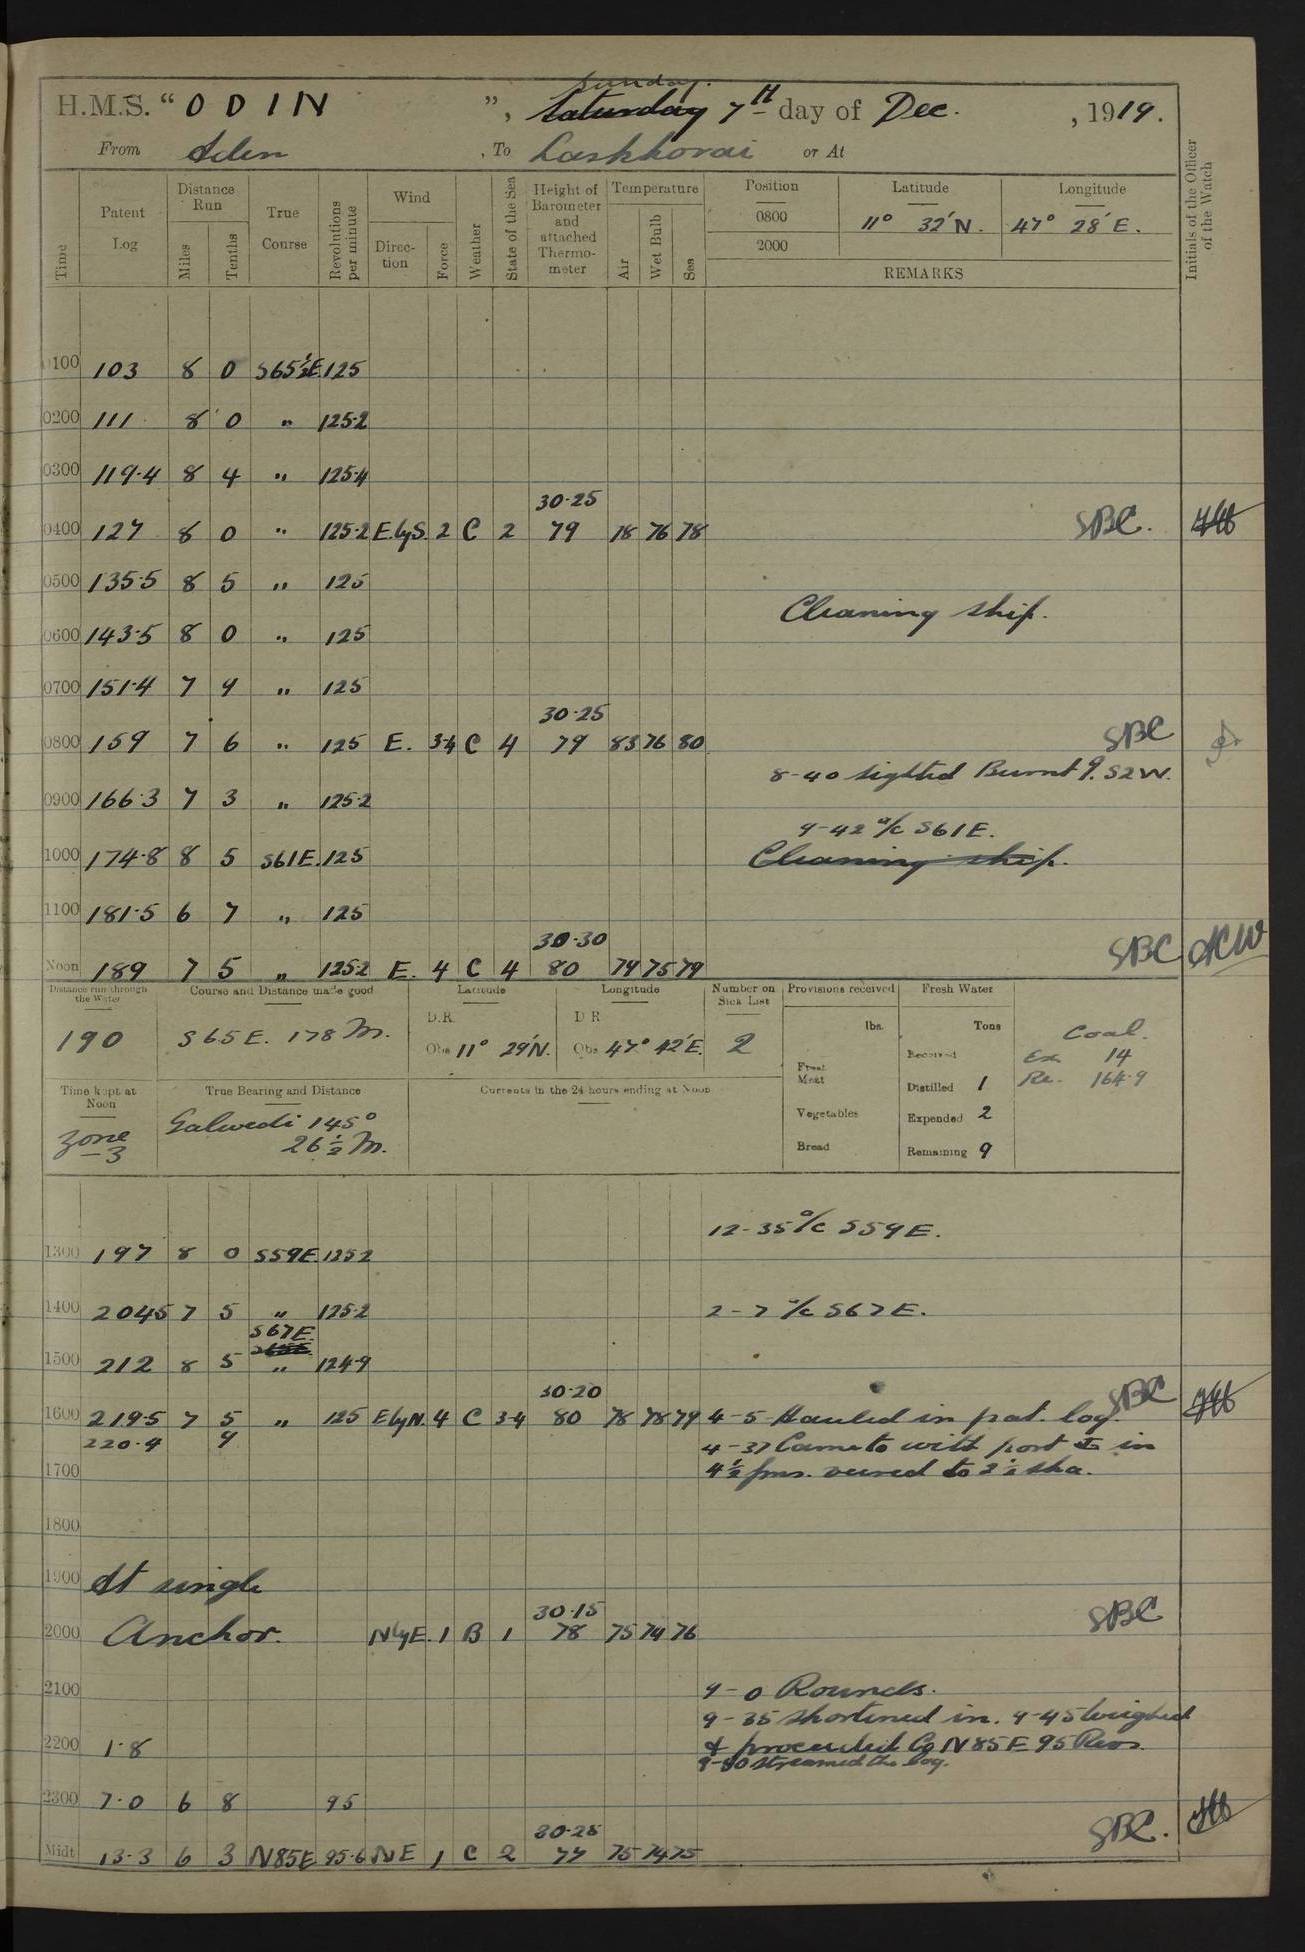 Sunday.
H.M.S. “ODIN”, Saturday 7th day of Dec., 1919.
From Aden, To Laskhorai or At
Time
Patent Log
Distance Run
Miles
Tenths
True Course
Revolutions per minute
Wind
Direc-tion
Force
Weather
State of the Sea
Height of Barometer and attached Thermo-meter
Temperature
Air
Wet Bulb
Sea
Position
0800
2000
Latitude
11° 32'N.
Longitude
47° 28'E.
REMARKS
Initials of the Officer of the Watch
0100 103 8 0 S65½E. 125
0200 111 8 0 " 125.2
0300 119.4 8 4 " 125.4
30.25
0400 127 8 0 " 125.2 E.byS. 2 C 2 79 78 76 78 SBC.
0500 135.5 8 5 " 125
Cleaning ship.
0600 143.5 8 0 " 125
0700 151.4 7 9 " 125
30.25
0800 159 7 6 " 125 E. 3.4 C 4 79 83 76 80 SBC
8-40 sighted Burnt I. S2W.
0900 166.3 7 3 " 125.2
9-42 a/c S61E.
1000 174.8 8 5 S61E. 125 Cleaning ship.
1100 181.5 6 7 " 125
30.30
Noon 189 7 5 " 125.2 E. 4 C 4 80 79 75 79 SBC ACW
Distance run through the Water
190
Course and Distance made good
S65E. 178 M.
Latitude
D.R.
Obs 11° 29'N.
Longitude
D R
Obs 47° 42'E.
Number on Sick List
2
Provisions received
lbs.
Fresh Meat
Vegetables
Bread
Fresh Water
Tons
Received
Distilled 1
Expended 2
Remaining 9
Coal.
Ex. 14
Re. 164.9
Time kept at Noon
Zone -3
True Bearing and Distance
Galwedi 145°
26½ M.
Currents in the 24 hours ending at Noon
12-35 a/c S59E.
1300 197 8 0 S59E. 125.2
1400 204.5 7 5 " 125.2 2-7 a/c S67E.
S67E.
1500 212 8 5 " 124.9
30.20 SBC
1600 219.5 7 5 " 125 EbyN. 4 C 3.4 80 78 78 79 4-5 Hauled in pat. log.
220.4 9 4-37 Came to with port ⚓ in
1700 4½ fms. veered to 2½ sha.
1800
1900 At single
30.15
2000 Anchor. NbyE. 1 B 1 78 75 74 76 SBC
2100 9-0 Rounds.
9-35 shortened in. 9-45 Weighed
2200 1.8 & proceeded Co N85E 95 Revs.
9-50 streamed the log.
2300 7.0 6 8 95
30.25
Midt 13.3 6 3 N85E 95.6 NE 1 C 2 77 75 74 75 SBC.